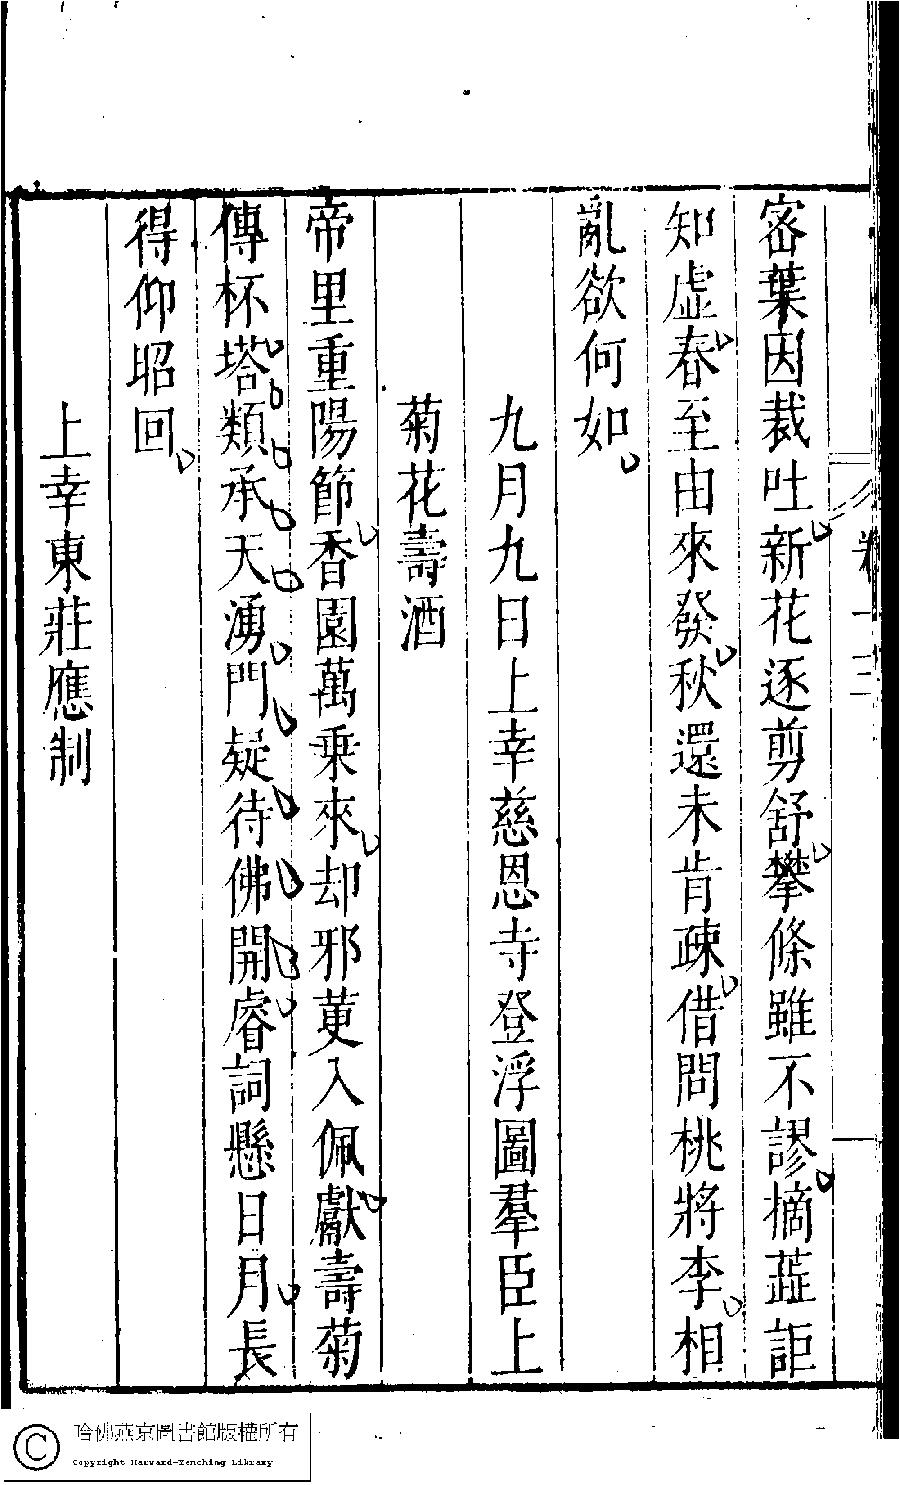 密葉因裁吐新花逐剪舒攀條雖不謬摘蘂詎
知虛春至由來發秋還未肯疎借問桃將李相
亂欲何如
九月九日上幸慈恩寺登浮圖羣臣上
菊花壽酒
帝里重陽節香園萬乗來却邪萸入佩獻壽菊
傳杯塔類承天湧門疑待佛開睿詞懸日月長
得仰昭回
上幸東莊應制
哈佛燕京圖書館版權所有
Copyright Harvard-Yenching Library